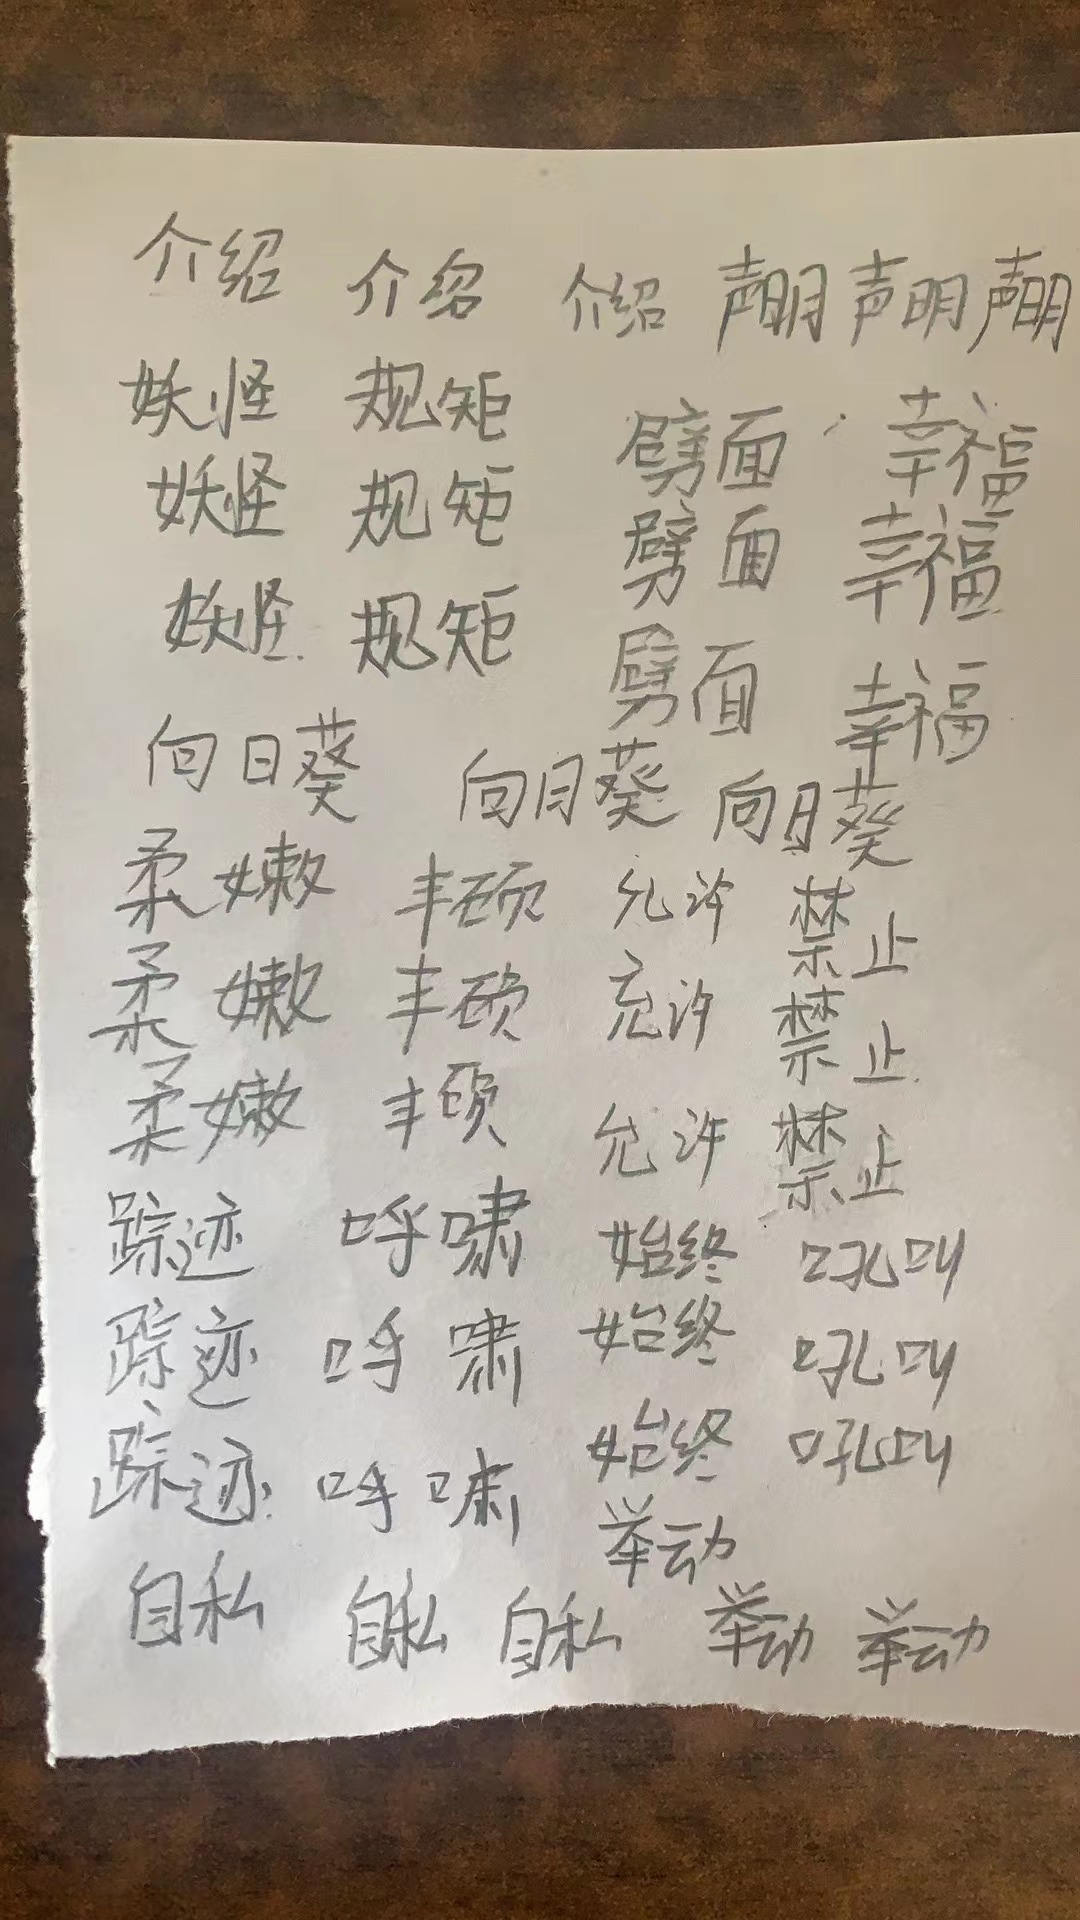 介绍 介绍 介绍 声明 声明 声明
妖怪 规矩 劈面 幸福
妖怪 规矩 劈面 幸福
妖怪 规矩 劈面 幸福
向日葵 向日葵 向日葵
柔嫩 丰硕 允许 禁止
柔嫩 丰硕 充许 禁止
柔嫩 丰硕 允许 禁止
踪迹 呼啸 始终 吼叫
踪迹 呼啸 始终 吼叫
踪迹 呼啸 始终 吼叫
举动
自私 自私 自私 举动 举动